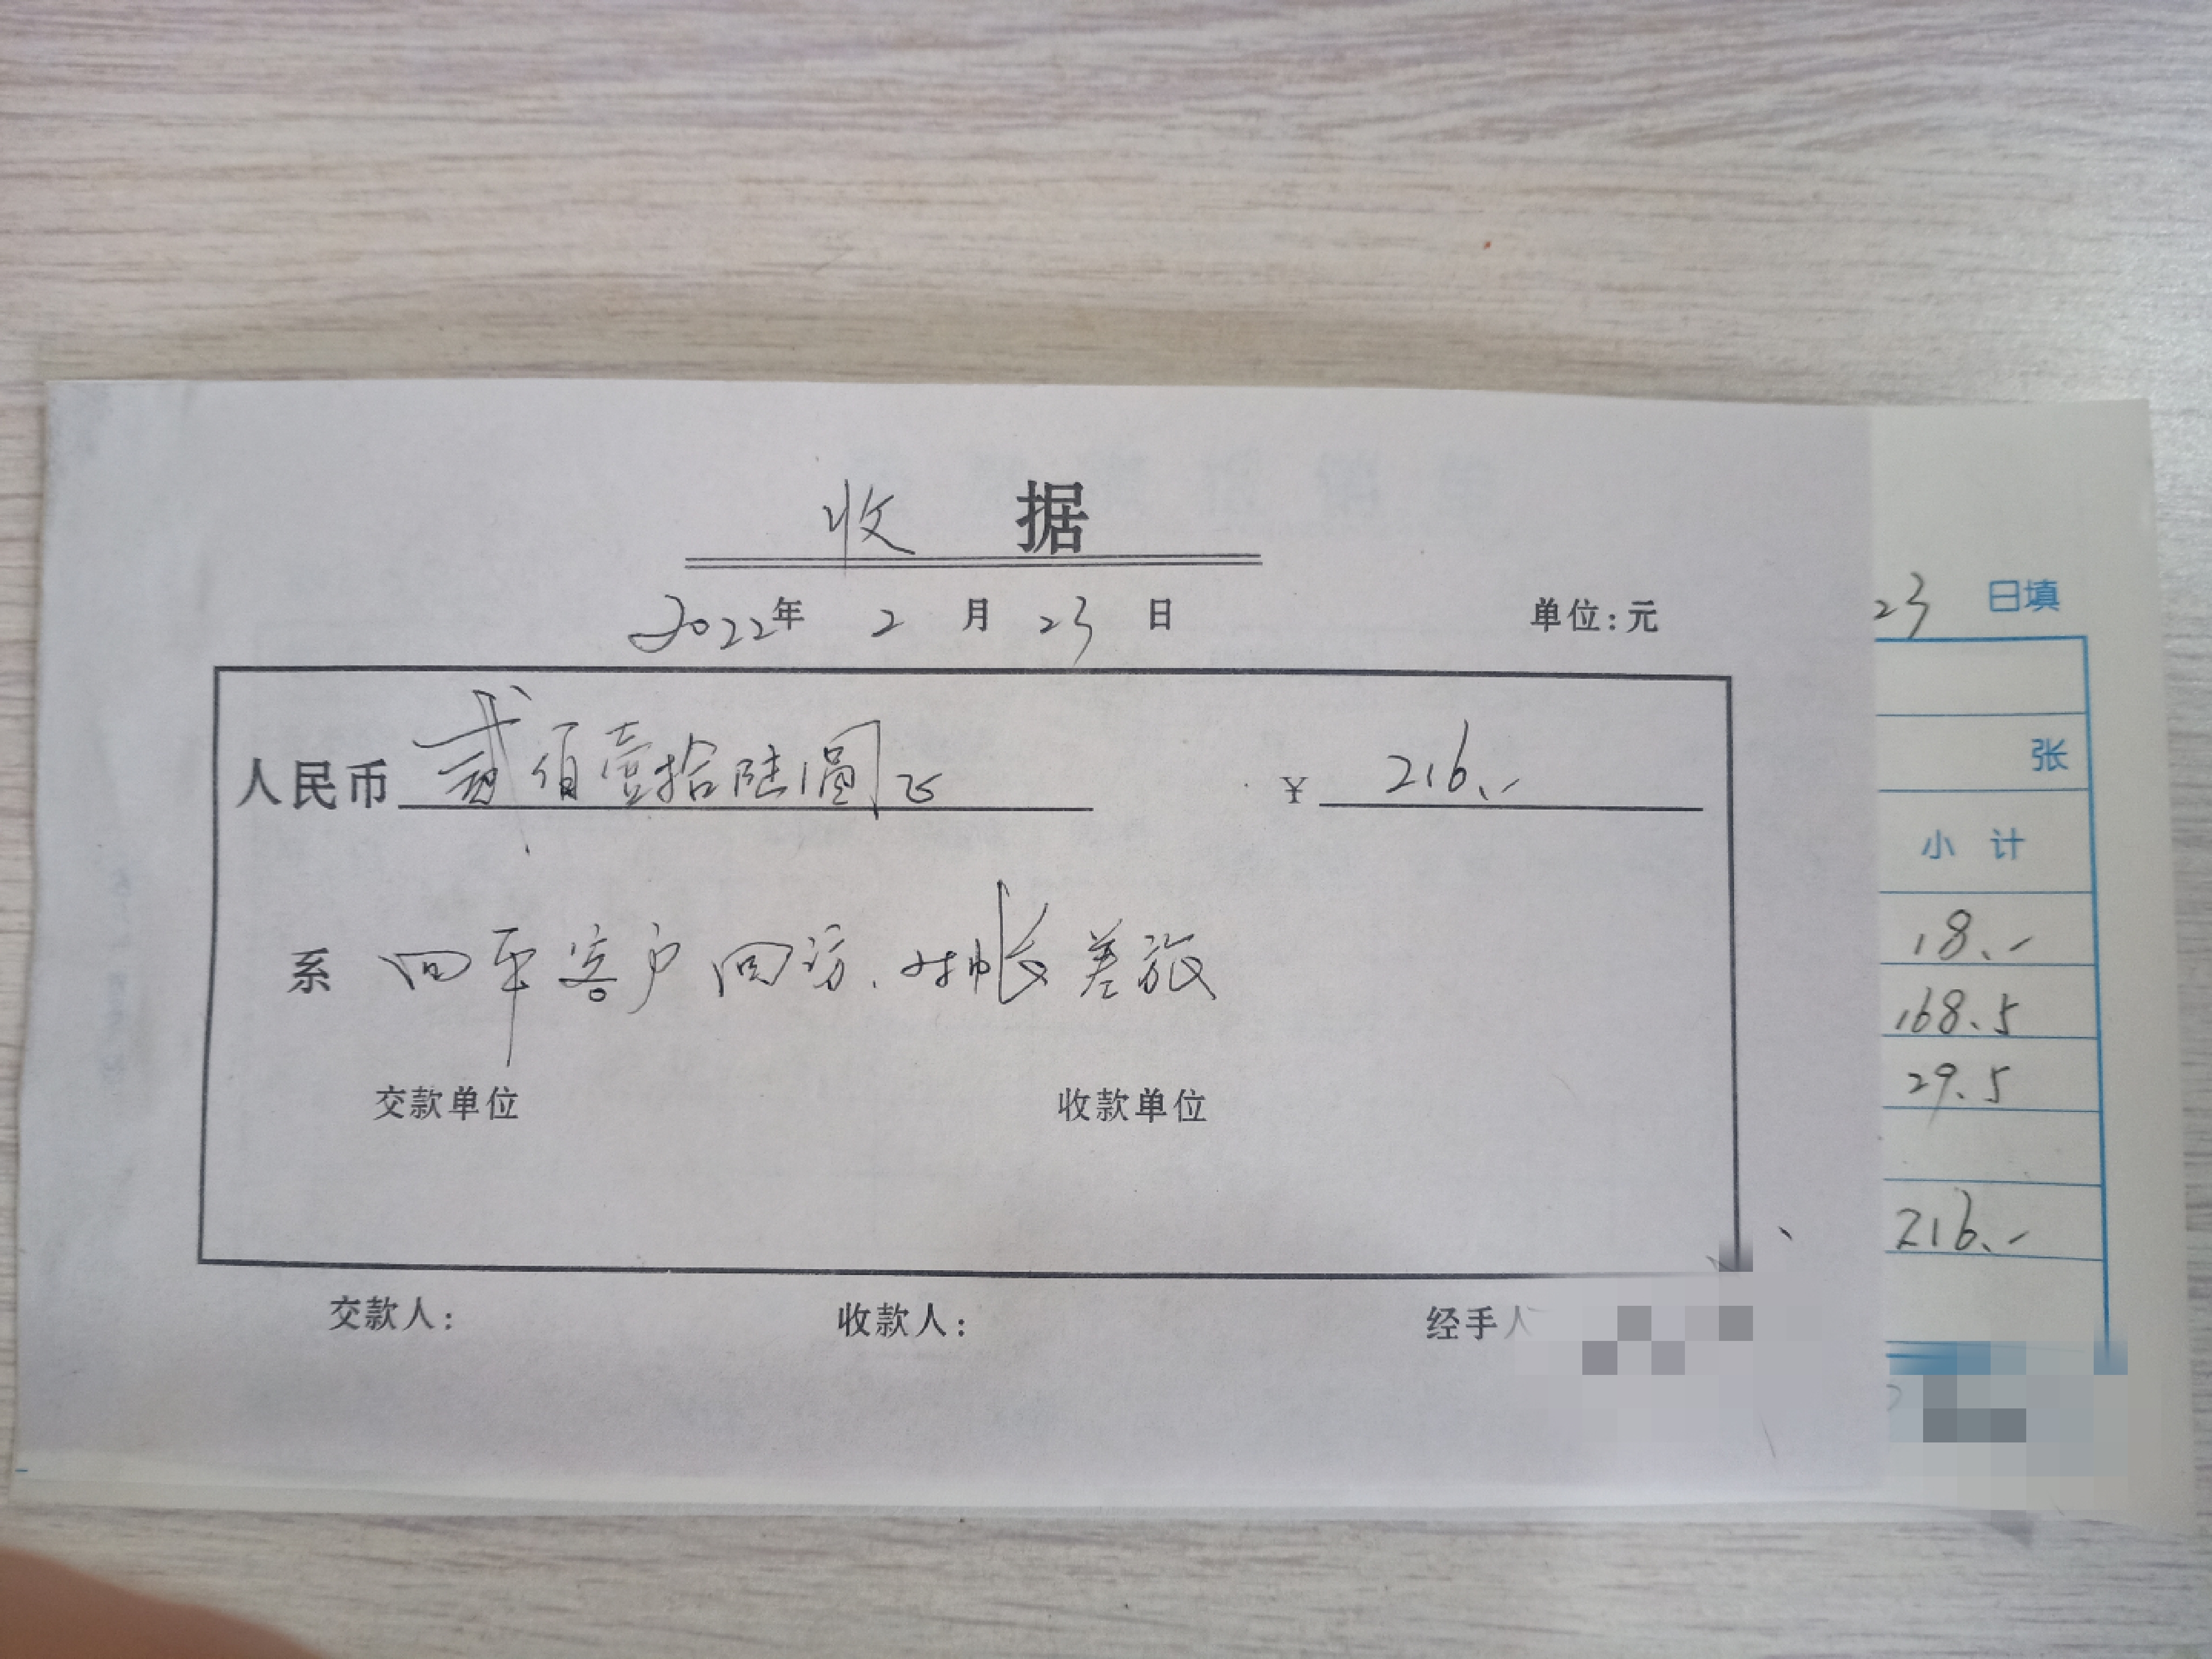 收 据
2022年 2 月 23 日 单位:元
人民币 贰佰壹拾陆圆正 ¥ 216.-
系 四平客户回访、对帐差旅
交款单位 收款单位
交款人: 收款人: 经手人
23 日填
张
小 计
18.-
168.5
29.5
216.-